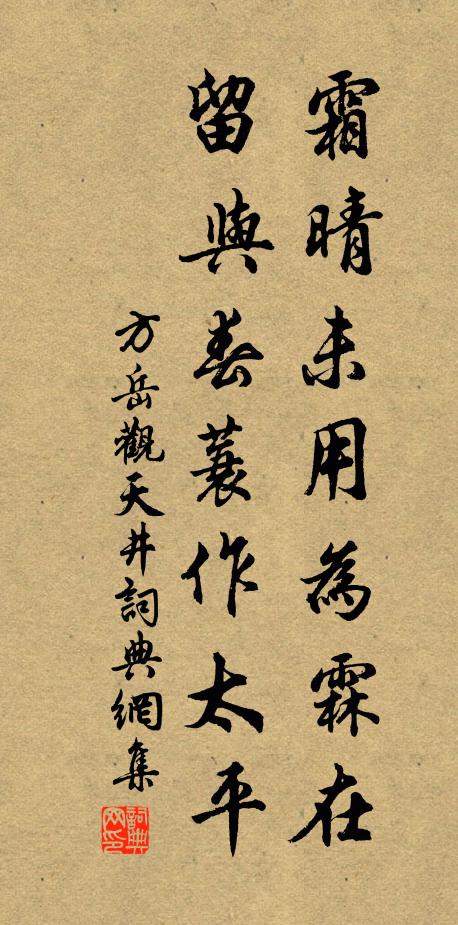 霜晴未用為霖在
留與春蓑作太平
方岳觀天井詞典網集
詞典网印